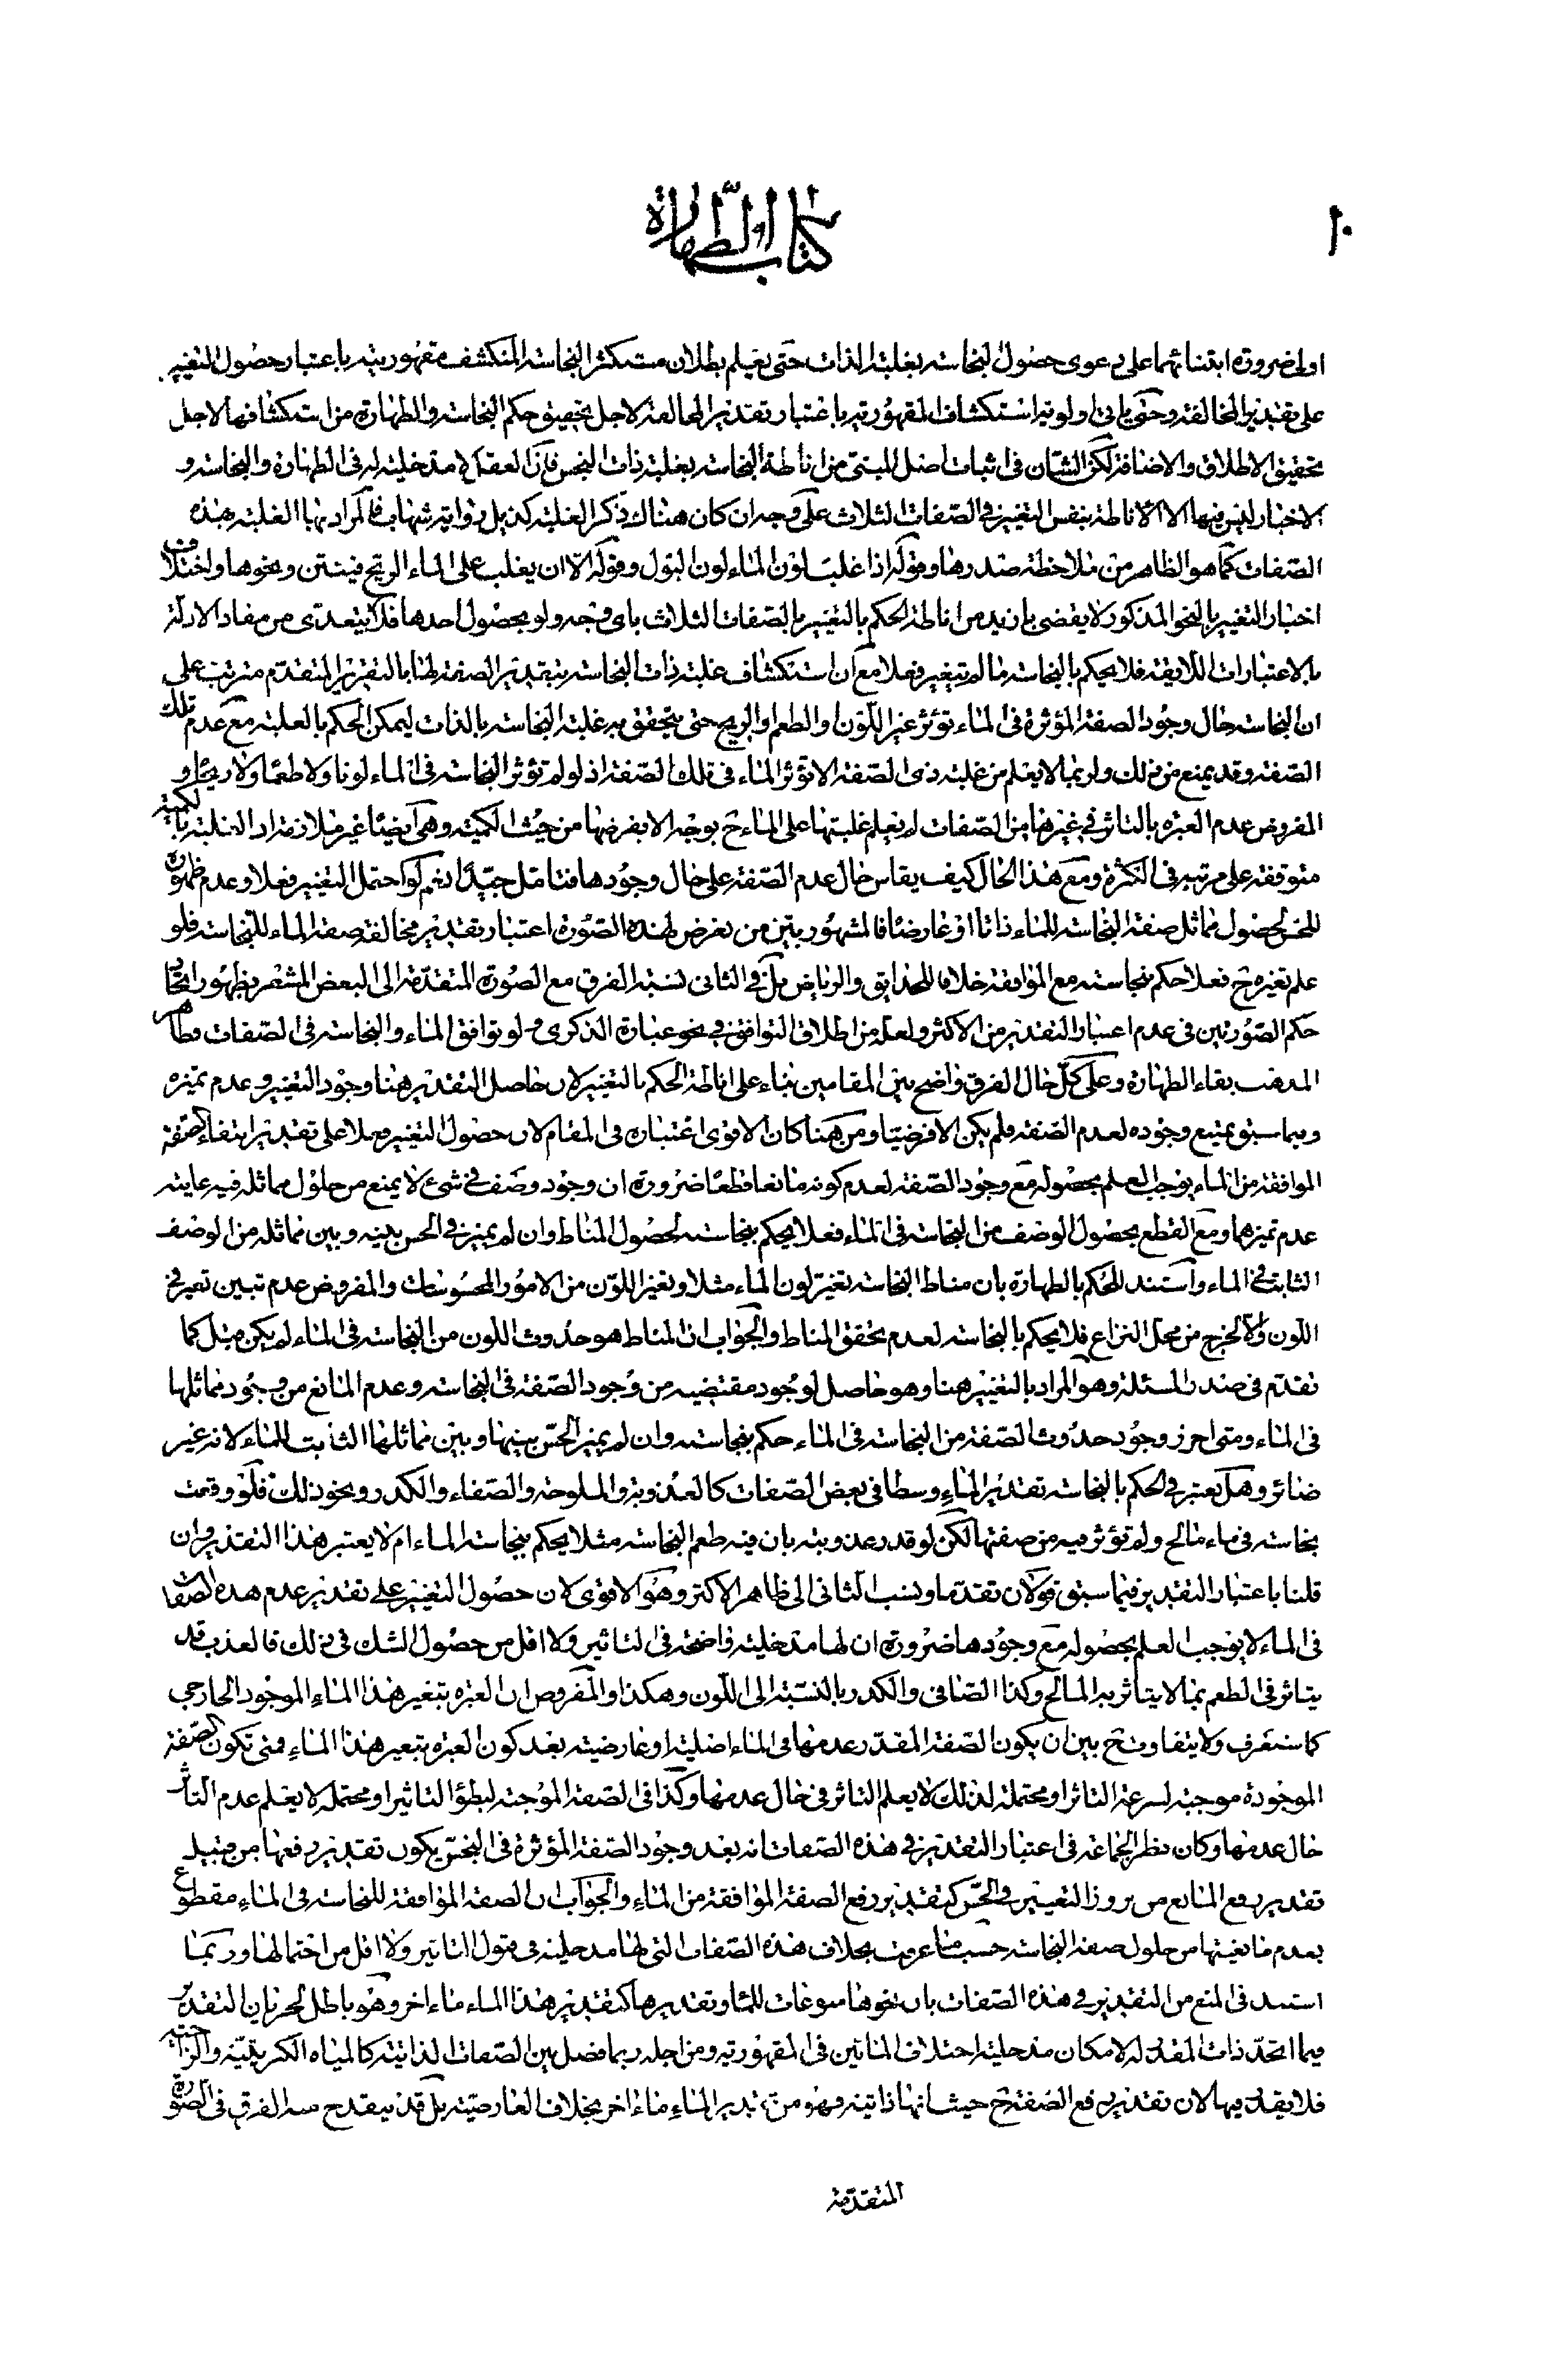 ١٠
كتاب الطهارة
اولى ضرورة ابتنائهما على دعوى حصول النجاسة بغلبة الذات حتى يعلم بطلان مستكثر النجاسة المنكشف مقهوريته باعتبار حصول التغيير
على تقدير المخالفة وحتى ياتى اولوية استكشاف المقهورية باعتبار تقدير المخالفة لاجل تحقيق حكم النجاسة والطهارة من استكشافها لاجل
تحقيق الاطلاق والاضافة لكن الشان فى اثبات اصل المبنى من اناطة النجاسة بغلبة ذات النجس فان العقل لا مدخلية له فى الطهارة والنجاسة و
الاخبار ليس فيها الا الاناطة بنفس التغيير فى الصفات الثلاث على وجه ان كان هناك ذكر الغلبة كذيل رواية شهاب فالمراد بها الغلبة بهذه
الصفات كما هو الظاهر من ملاحظة صدرها وقوله اذا غلب لون الماء لون البول وقوله الا ان يغلب على الماء الريح فينتن ونحوها واختلاف
اخبار التغيير بالنحو المذكور لا يقضى بازيد من اناطة الحكم بالتغيير بالصفات الثلاث باى وجه ولو بحصول احدها فلا يتعدى من مفاد الادلة
بالاعتبارات اللايقة فلا يحكم بالنجاسة ما لم يتغير فعلا مع ان استكشاف غلبة ذات النجاسة بتقدير الصفة لها بالتقرير المتقدم مترتب على
ان النجاسة حال وجود الصفة المؤثرة فى الماء تؤثر غير اللون والطعم والريح حتى يتحقق به غلبة النجاسة بالذات ليمكن الحكم بالغلبة مع عدم تلك
الصفة وقد يمنع من ذلك ولربما لا يعلم من غلبة ذى الصفة الا تؤثر الماء فى تلك الصفة اذ لو لم تؤثر النجاسة فى الماء لونا ولا طعما ولا ريحا و
المفروض عدم العبرة بالتاثر فى غيرها من الصفات لم يعلم غلبتها على الماء ح بوجه الا بفرضها من حيث الكمية وهى ايضا غير ملازمة اذ الغلبة بالكمية
متوقفة على مرتبة فى الكثرة ومع هذا الحال كيف يقاس حال عدم الصفة على حال وجودها فتامل جيدا نعم لو احتمل التغيير فعلا وعدم ظهوره
للحس لحصول مماثل صفة النجاسة للماء ذاتا او عارضا فالمشهور بين من تعرض لهذه الصورة اعتبار تقدير مخالفة صفة الماء للنجاسة فلو
علم تغيره ح فعلا حكم بنجاسته مع الموافقة خلافا للحدايق والرياض بل فى الثانى نسبة الفرق مع الصورة المتقدمة الى البعض المشعر بظهور اتحاد
حكم الصورتين فى عدم اعتبار التقدير من الاكثر ولعله من اطلاق التوافق فى نحو عبارة الذكرى ولو توافق الماء والنجاسة فى الصفات فظاهر
المذهب بقاء الطهارة وعلى كل حال الفرق واضح بين المقامين بناء على اناطة الحكم بالتغيير لان حاصل التقدير هنا وجود التغيير وعدم تميزه
وفيما سبق يمتنع وجوده لعدم الصفة فلم يكن الا فرضيا ومن هنا كان الاقوى اعتباره فى المقام لان حصول التغيير فعلا على تقدير انتفاء الصفة
الموافقة من الماء يوجب العلم بحصوله مع وجود الصفة لعدم كونه مانعا قطعا ضرورة ان وجود وصف فى شئ لا يمنع من حلول مماثله فيه غايته
عدم تميزهما ومع القطع بحصول الوصف من النجاسة فى الماء فعلا يحكم بنجاسته لحصول المناط وان لم يميز فى الحس بينه وبين مماثله من الوصف
الثابت فى الماء واستند للحكم بالطهارة بان مناط النجاسة تغير لون الماء مثلا وتغير اللون من الامور المحسوسات والمفروض عدم تبين تغير فى
اللون والا لخرج من محل النزاع فلا يحكم بالنجاسة لعدم تحقق المناط والجواب ان المناط هو حدوث اللون من النجاسة فى الماء لم يكن قبل كما
تقدم فى صدر المسئلة وهو المراد بالتغيير هنا وهو حاصل لوجود مقتضيه من وجود الصفة فى النجاسة وعدم المانع من وجود مماثلها
فى الماء ومتى احرز وجود حدوث الصفة من النجاسة فى الماء حكم بنجاسته وان لم يميز الحس بينها وبين مماثلها الثابت للماء لانه غير
ضائر وهل يعتبر فى الحكم بالنجاسة تقدير الماء وسطا فى بعض الصفات كالعذوبة والملوحة والصفاء والكدر ونحو ذلك فلو وقعت
نجاسة فى ماء مالح ولم تؤثر فيه من صفتها لكن لو قدر عذوبته بان فيه طعم النجاسة مثلا يحكم بنجاسة الماء ام لا يعتبر هذا التقدير وان
قلنا باعتبار التقدير فيما سبق قولان تقدما ونسب الثانى الى ظاهر الاكثر وهو الاقوى لان حصول التغيير على تقدير عدم هذه الصفات
فى الماء لا يوجب العلم بحصوله مع وجودها ضرورة ان لها مدخلية واضحة فى التاثير ولا اقل من حصول الشك فى ذلك فالعذب قد
يتاثر فى الطعم بما لا يتاثر به المالح وكذا الصافى والكدر بالنسبة الى اللون وهكذا والمفروض ان العبرة بتغير هذا الماء الموجود الخارجى
كما ستعرف ولا يتفاوت ح بين ان يكون الصفة المقدر عدمها فى الماء اصلية او عارضية بعد كون العبرة بتغير هذا الماء فمتى تكون الصفة
الموجودة موجبة لسرعة التاثر او محتملة لذلك لا يعلم التاثر فى حال عدمها وكذا فى الصفة الموجبة لبطؤ التاثير او محتمله لا يعلم عدم التاثر
حال عدمها وكان نظر الجماعة فى اعتبار التقدير فى هذه الصفات انه بعد وجود الصفة المؤثرة فى النجس يكون تقدير رفعها من قبيل
تقدير رفع المانع من بروز التغيير فى الحس كتقدير رفع الصفة الموافقة من الماء والجواب ان الصفة الموافقة للنجاسة فى الماء مقطوع
بعدم مانعيتها من حلول صفة النجاسة حسبما عرفت بخلاف هذه الصفات التى لها مدخلية فى قبول التاثير ولا اقل من احتمالها وربما
استند فى المنع من التقدير فى هذه الصفات بان نحوها منوعات للماء وتقديرها كتقدير هذا الماء ماء اخر وهو باطل لجريان التقدير
فيما اتحد ذات المقدر له لامكان مدخلية اختلاف المائين فى المقهورية ومن اجله ربما فصل بين الصفات الذاتية كالمياه الكبريتية والزاجية
فلا يقدر فيها لان تقدير رفع الصفة ح حيث انها ذاتية وهو من تقدير الماء ماء اخر بخلاف العارضية بل قد ينقدح منه الفرق فى الصورة
المتقدمة